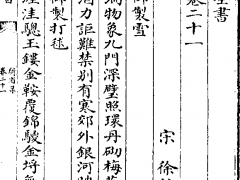 書
卷二十一
宋 徐
御製雪
物象九門浮璧照環丹砌梅
酒力詎難禁別有寒郊外銀河
御製打毬
洼驄玉鏤金鞍覆錦駿金埒
卷二十一